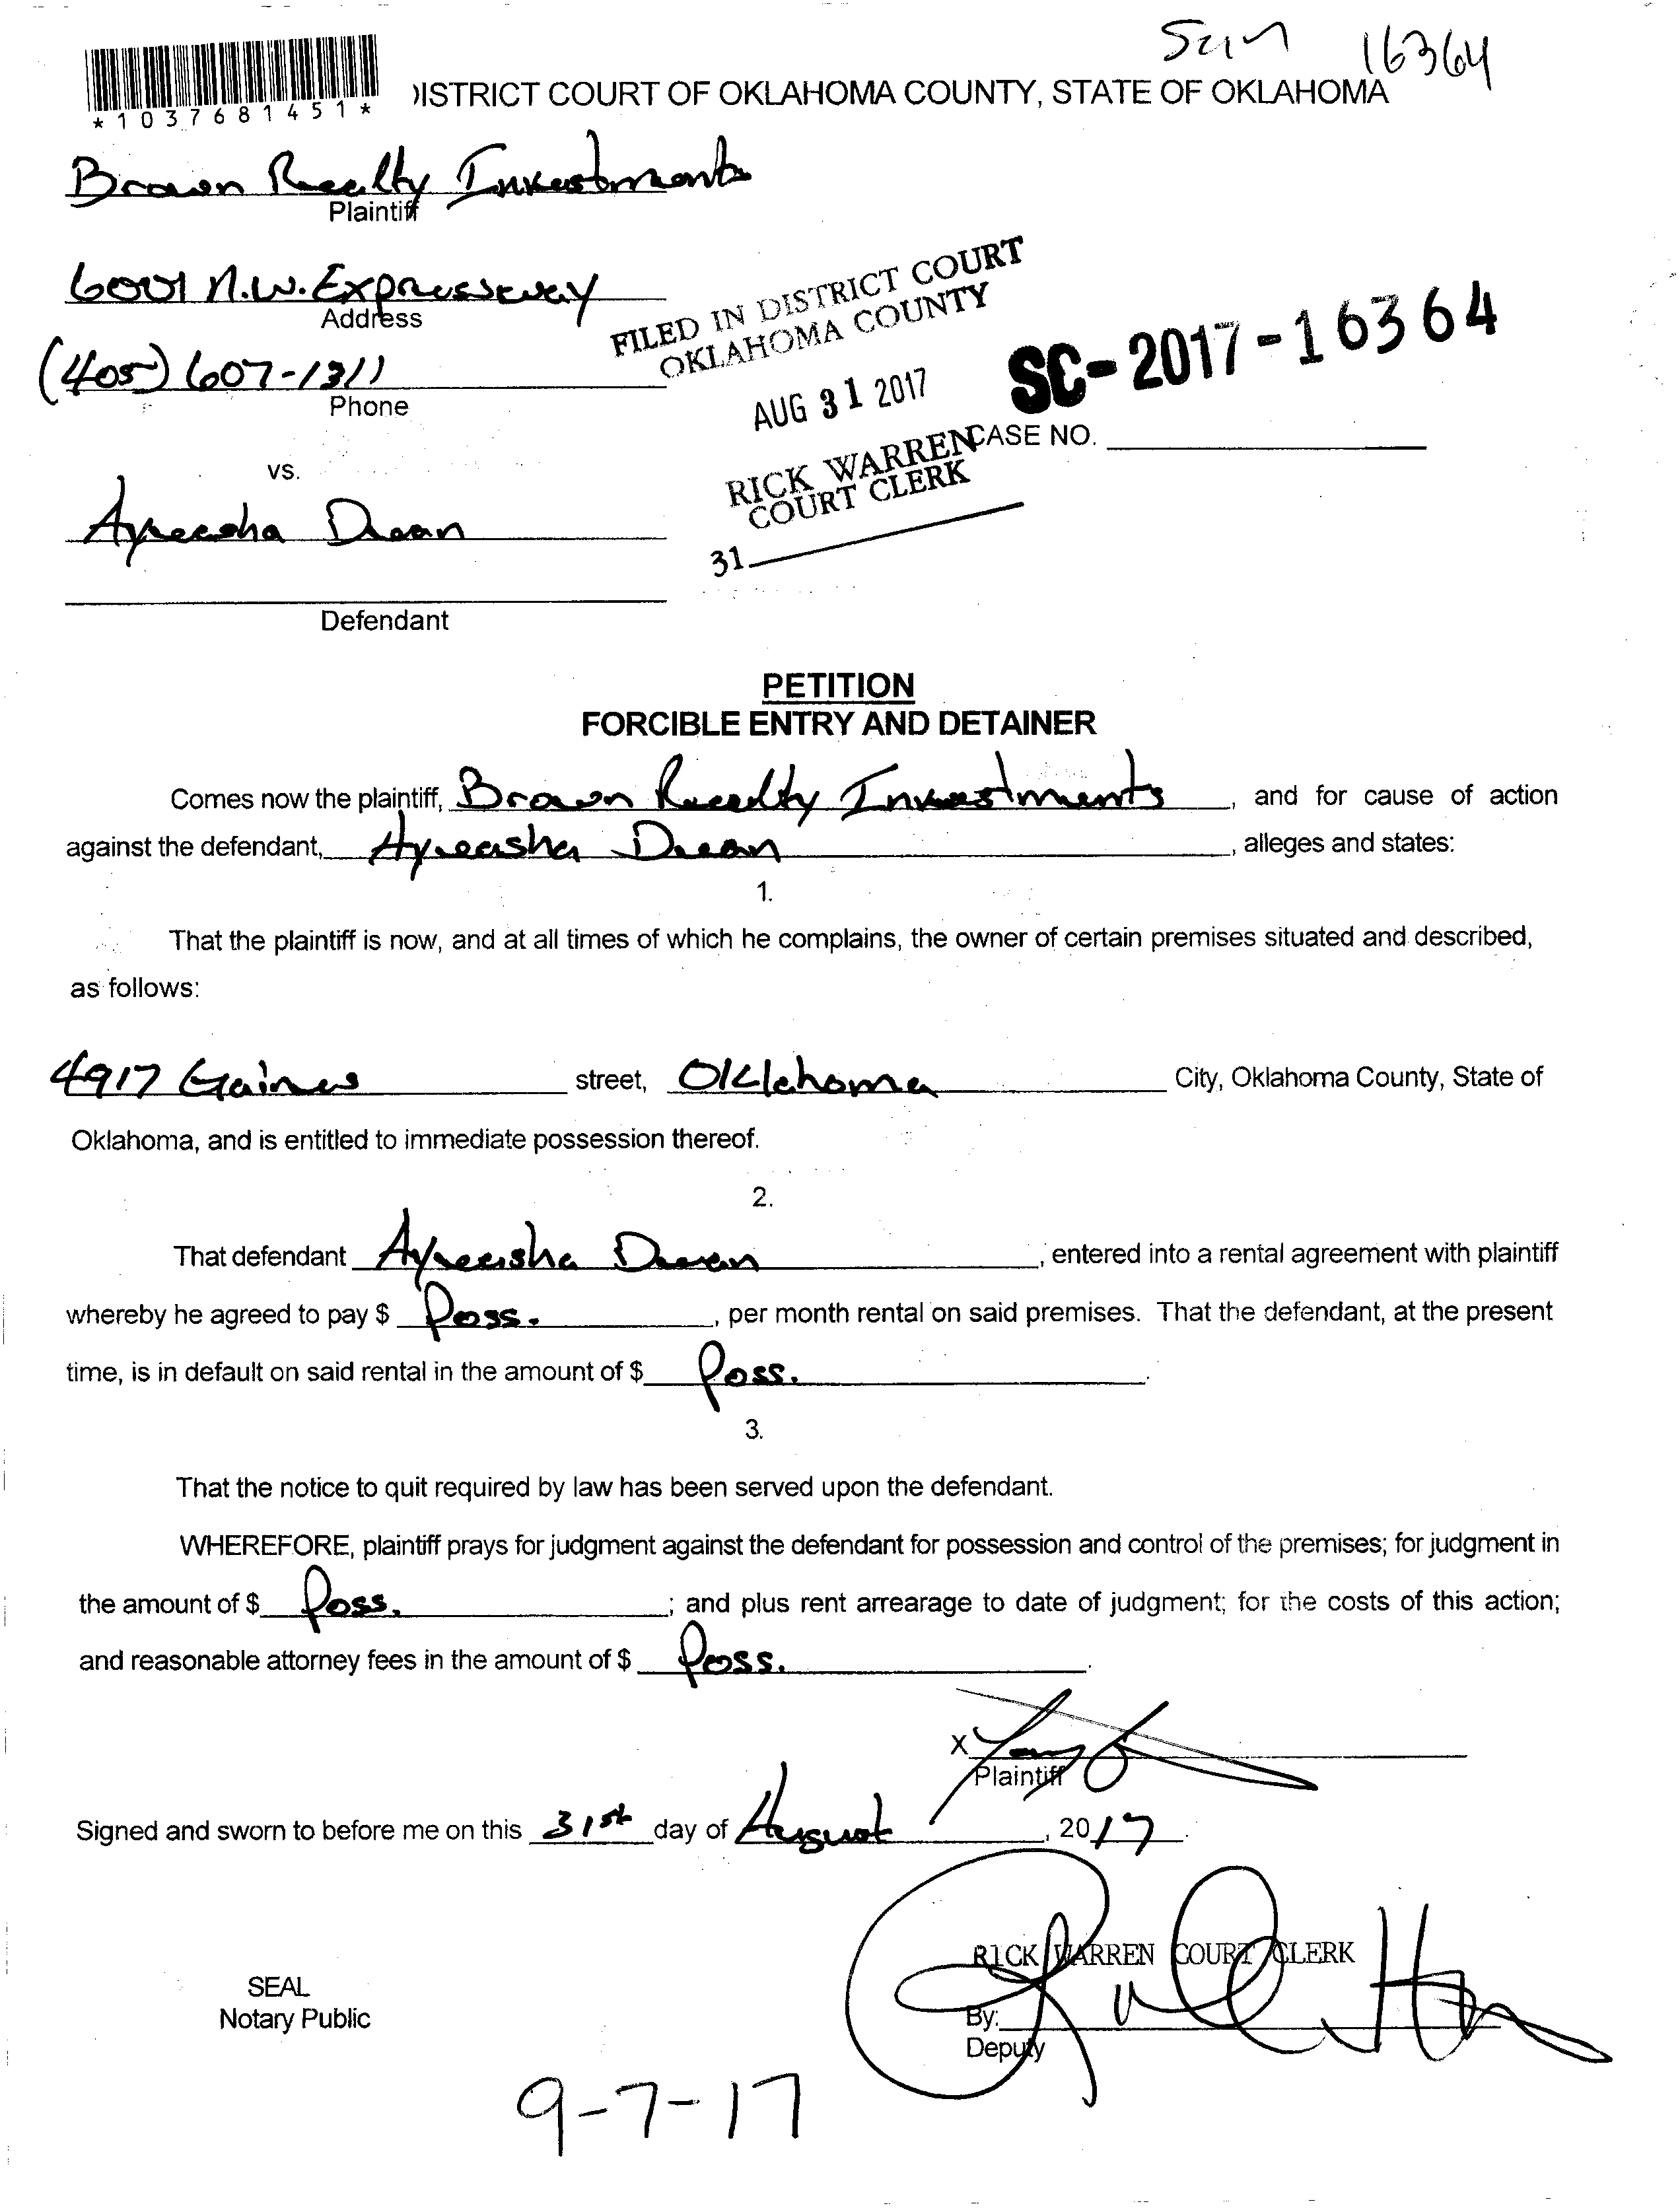 16364
*1037681451*
DISTRICT COURT OF OKLAHOMA COUNTY, STATE OF OKLAHOMA
Brown Realty Investments
Plaintiff
6001 N.W. Expressway
Address
(405) 607-1311
Phone
FILED IN DISTRICT COURT
OKLAHOMA COUNTY
AUG 31 2017
RICK WARREN
COURT CLERK
31
SC-2017-16364
CASE NO.
vs.
Ayreesha Dean
Defendant
PETITION
FORCIBLE ENTRY AND DETAINER
Comes now the plaintiff, Brown Realty Investments, and for cause of action
against the defendant, Ayreesha Dean, alleges and states:
1.
That the plaintiff is now, and at all times of which he complains, the owner of certain premises situated and described,
as follows:
4917 Gaines street, Oklahoma City, Oklahoma County, State of
Oklahoma, and is entitled to immediate possession thereof.
2.
That defendant Ayreesha Dean, entered into a rental agreement with plaintiff
whereby he agreed to pay $ Poss., per month rental on said premises. That the defendant, at the present
time, is in default on said rental in the amount of $ Poss.
3.
That the notice to quit required by law has been served upon the defendant.
WHEREFORE, plaintiff prays for judgment against the defendant for possession and control of the premises; for judgment in
the amount of $ Poss.; and plus rent arrearage to date of judgment; for the costs of this action;
and reasonable attorney fees in the amount of $ Poss.
X
Plaintiff
Signed and sworn to before me on this 31st day of August, 2017.
RICK WARREN COURT CLERK
SEAL
Notary Public
By:
Deputy
9-7-17